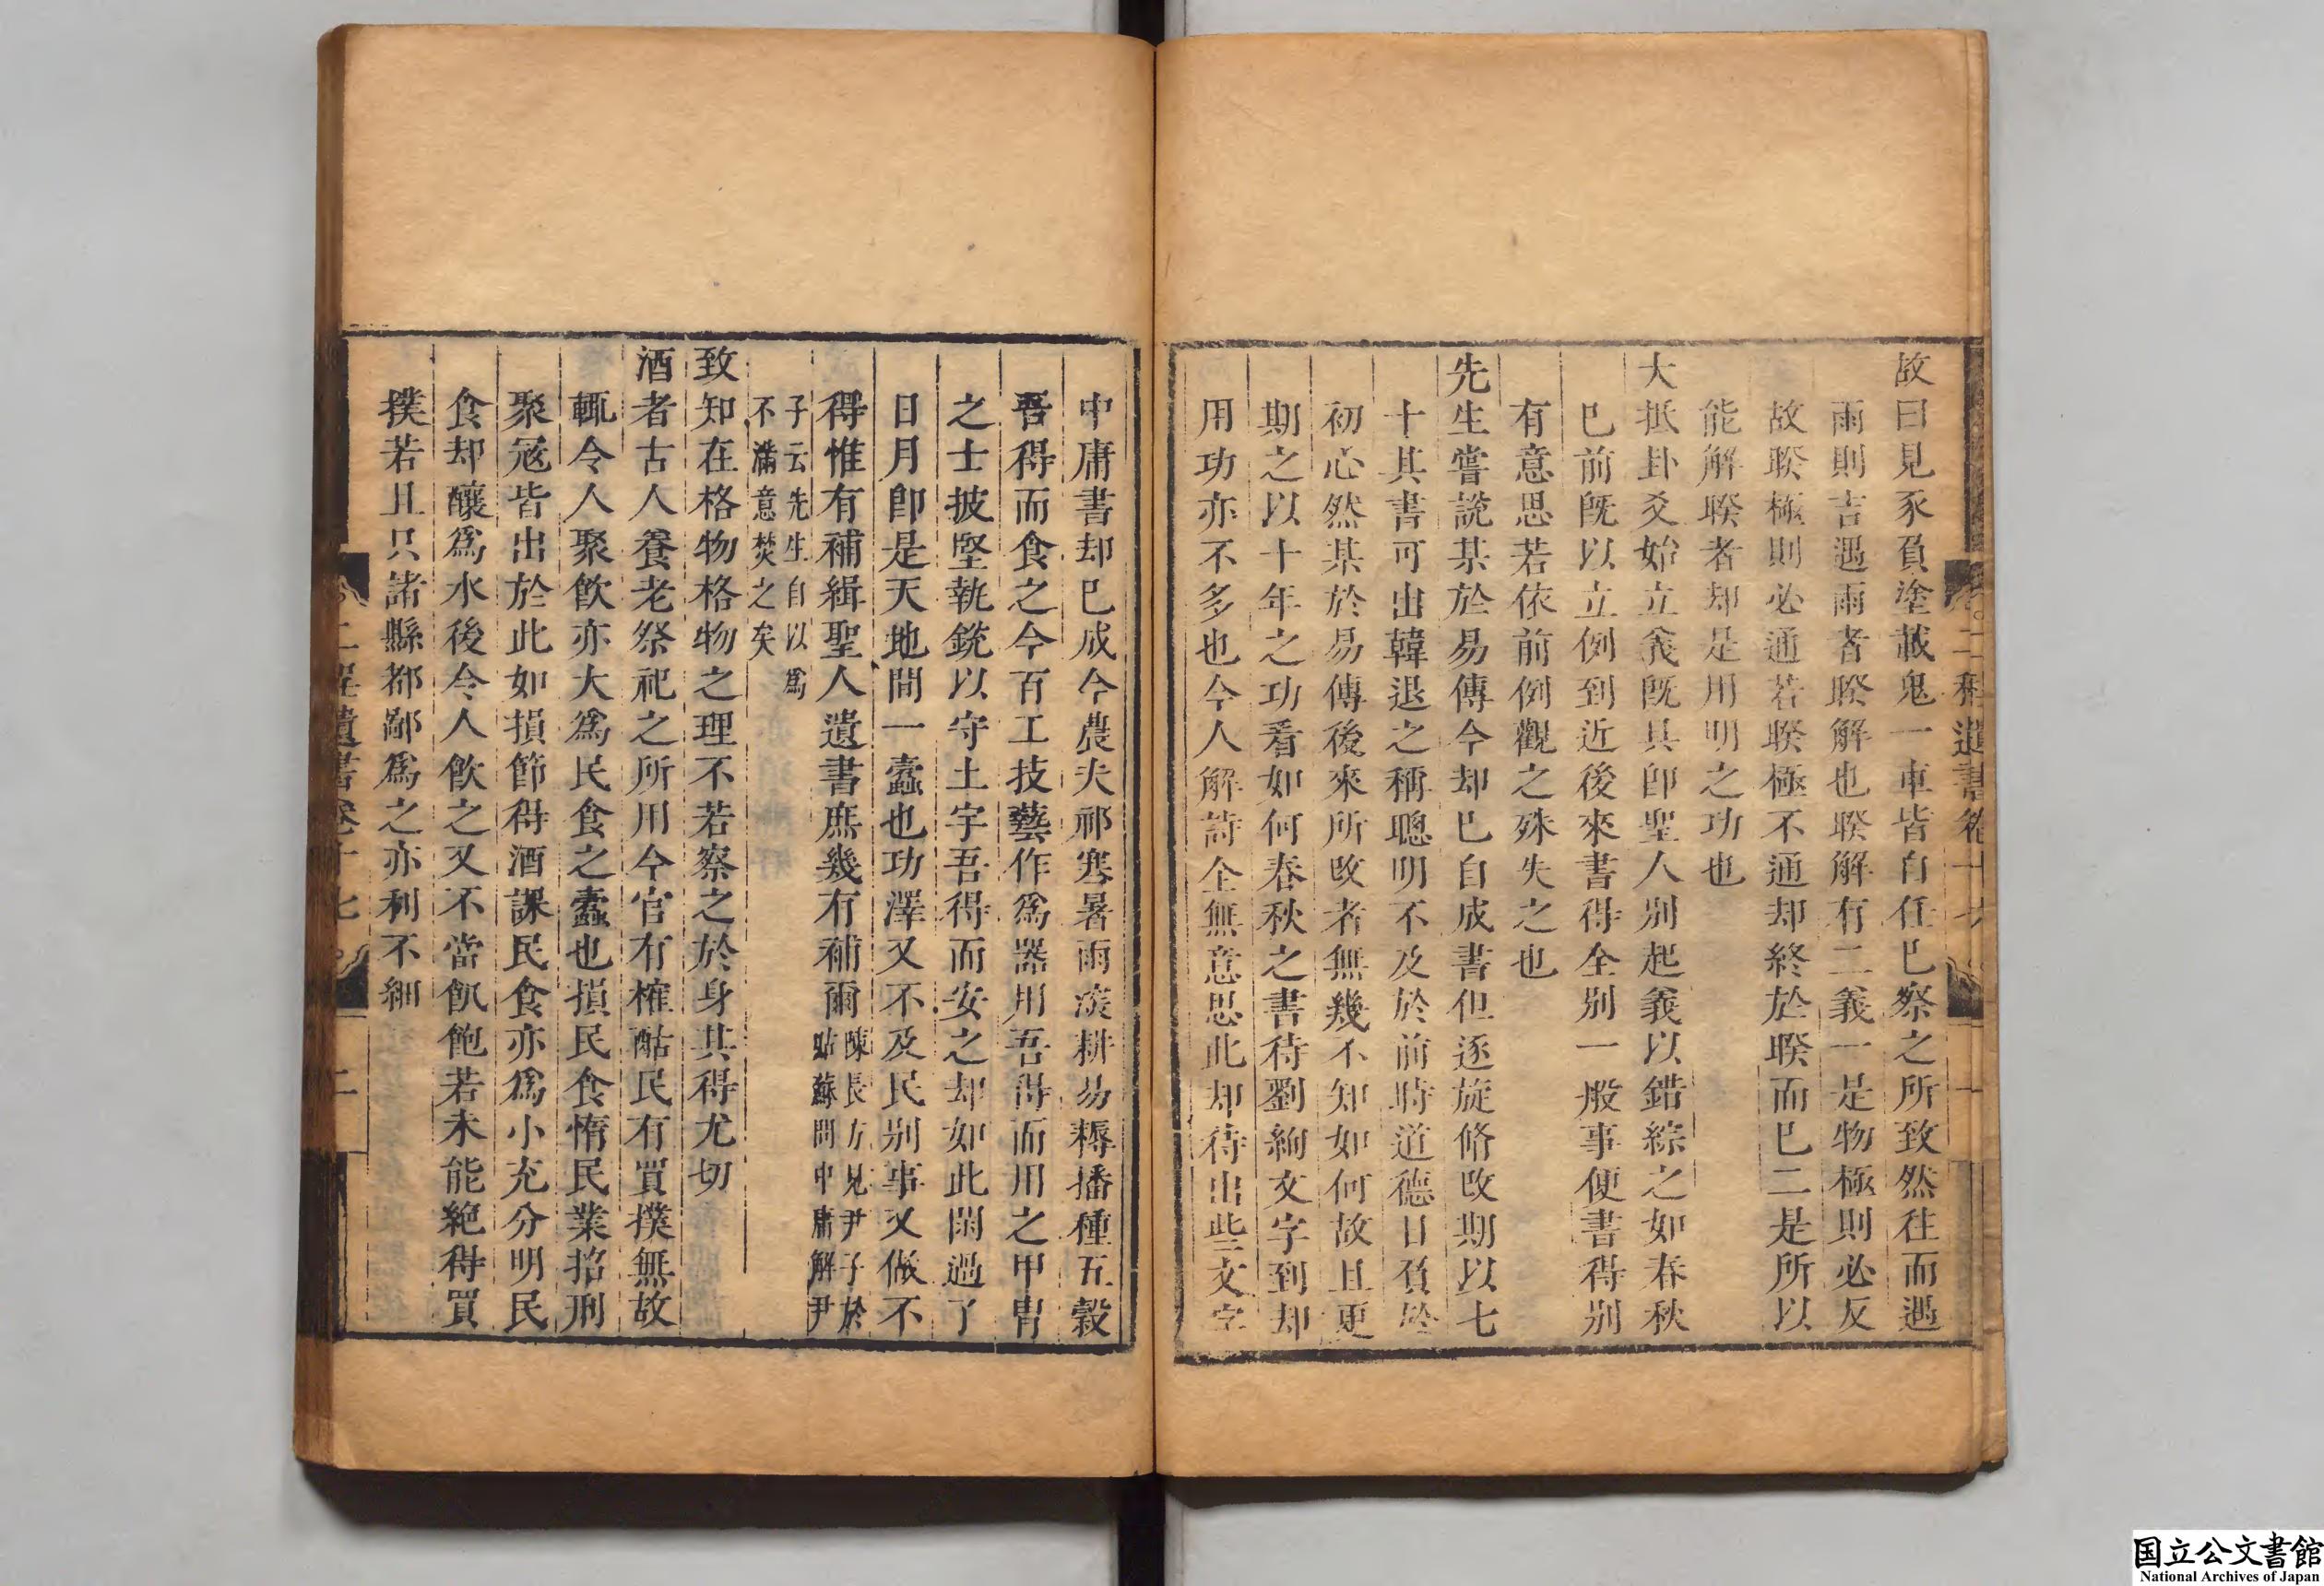 故曰見豕負塗載鬼一車皆自任己察之所致然往而遇
雨則吉遇雨者睽解也睽解有二義一是物極則必反
故睽極則必通若睽極不通却終於睽而已二是所以
能解睽者却是用明之功也
大抵卦爻始立義既具卽聖人别起義以錯綜之如春秋
已前既以立例到近後來書得全别一般事便書得别
有意思若依前例觀之殊失之也
先生嘗說某於易傳今却已自成書但逐旋脩改期以七
十其書可出韓退之稱聰明不及於前時道德日負於
初心然某於易傳後來所改者無幾不知如何故且更
期之以十年之功看如何春秋之書待劉絢文字到却
用功亦不多也今人解詩全無意思此却待出些文字
中庸書却已成今農夫祁寒暑雨深耕易耨播種五穀
吾得而食之今百工技藝作爲器用吾得而用之甲冑
之士披堅執銳以守土宇吾得而安之却如此閑過了
日月卽是天地間一蠹也功澤又不及民别事又做不
得惟有補緝聖人遺書庶幾有補爾陳長方見尹子於
姑蘇問中庸解尹
子云先生自以爲
不滿意焚之矣
致知在格物格物之理不若察之於身其得尤切
酒者古人養老祭祀之所用今官有榷酤民有買撲無故
輒令人聚飲亦大爲民食之蠹也損民食惰民業招刑
聚寇皆出於此如損節得酒課民食亦爲小充分明民
食却釀爲水後令人飲之又不當飢飽若未能絶得買
撲若且只諸縣都鄙爲之亦利不細
二程遺書卷十七
二
国立公文書館
National Archives of Japan